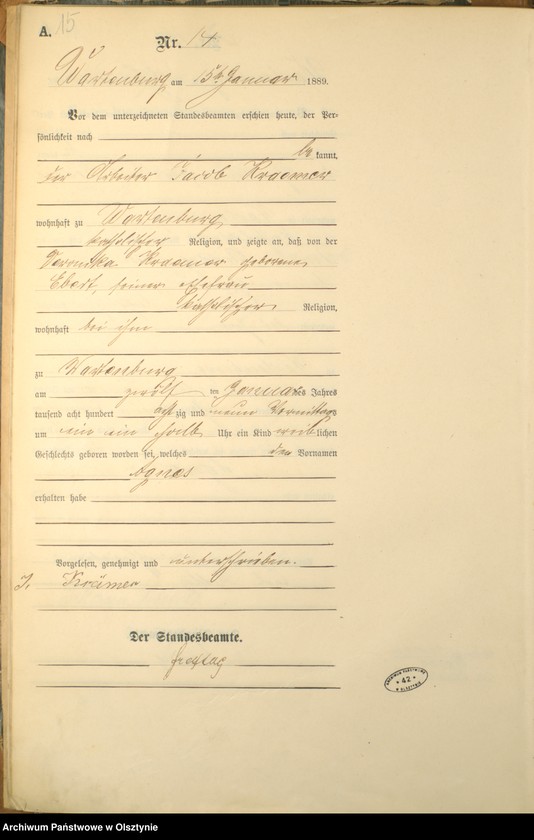 A. 15
Nr. 14
Wartenburg am 15ten Januar 1889.
Vor dem unterzeichneten Standesbeamten erschien heute, der Per-
sönlichkeit nach
be kannt,
der Arbeiter Jacob Kraemer
wohnhaft zu Wartenburg
katholischer Religion, und zeigte an, daß von der
Veronika Kraemer geborene
Ebert, seiner Ehefrau
katholischer Religion,
wohnhaft bei ihm
zu Wartenburg
am zwölf ten Januar des Jahres
tausend acht hundert acht zig und neun Vormittags
um ein ein halb Uhr ein Kind weib lichen
Geschlechts geboren worden sei, welches den Vornamen
Agnes
erhalten habe
Vorgelesen, genehmigt und unterschrieben.
J. Krämer
Der Standesbeamte.
Freytag
ARCHIWUM PAŃSTWOWE
* 42 *
W OLSZTYNIE
Archiwum Państwowe w Olsztynie